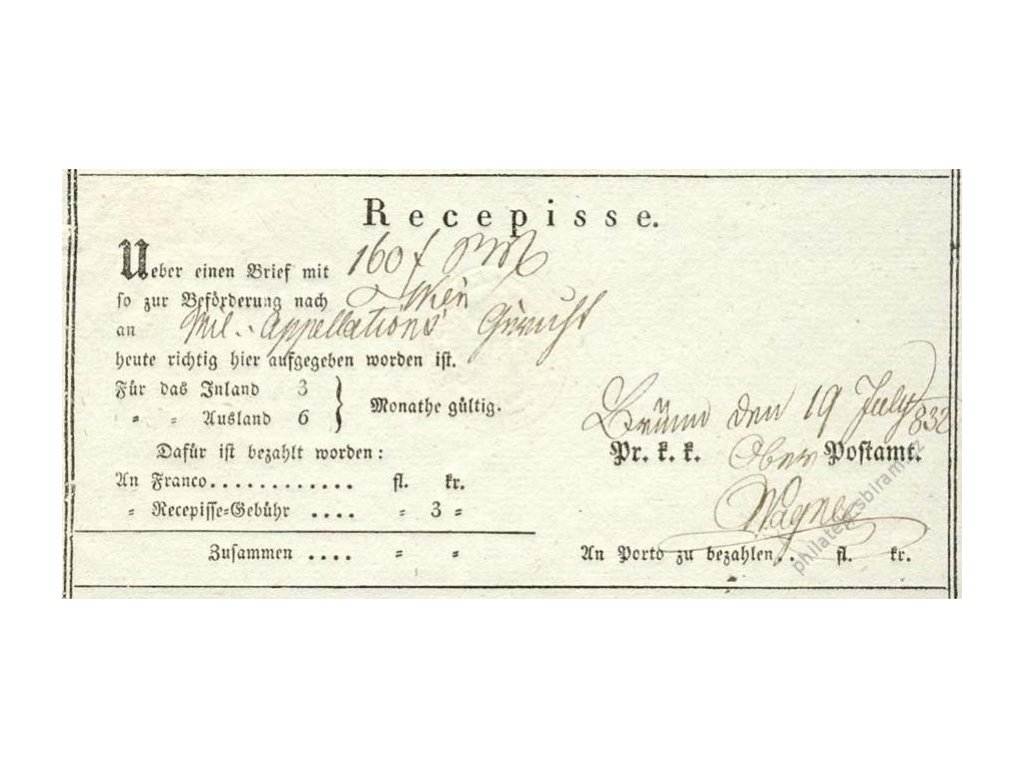 Recepisse.
Ueber einen Brief mit 160 f
so zur Beförderung nach Wien
an Mil. Appellations Gericht
heute richtig hier aufgegeben worden ist.
Für das Inland 3
„ „ Ausland 6 } Monathe gültig.
Brünn den 19 July 832
Dafür ist bezahlt worden:
Pr. k. k. Ober Postamt.
An Franco............ fl. kr.
„ Recepisse-Gebühr .... „ 3 „
Wagner
Zusammen .... „ „
An Porto zu bezahlen.. fl. kr.